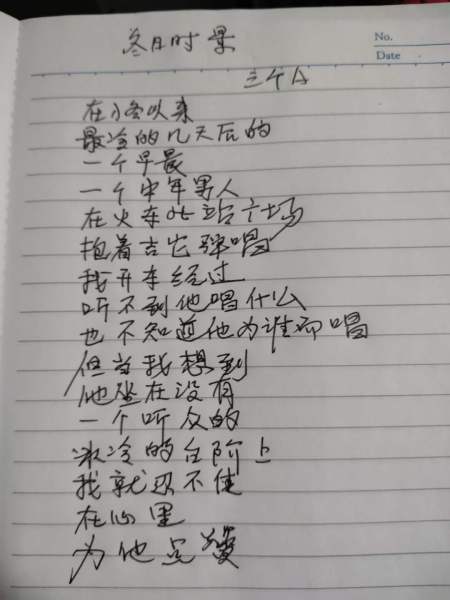 冬日时景
No.
Date
三个A
在小冬以来
最冷的几天后的
一个早晨
一个中年男人
在火车北站广场
抱着吉它弹唱
我开车经过
听不到他唱什么
也不知道他为谁而唱
但当我想到
他坐在没有
一个听众的
冰冷的台阶上
我就忍不住
在心里
为他点